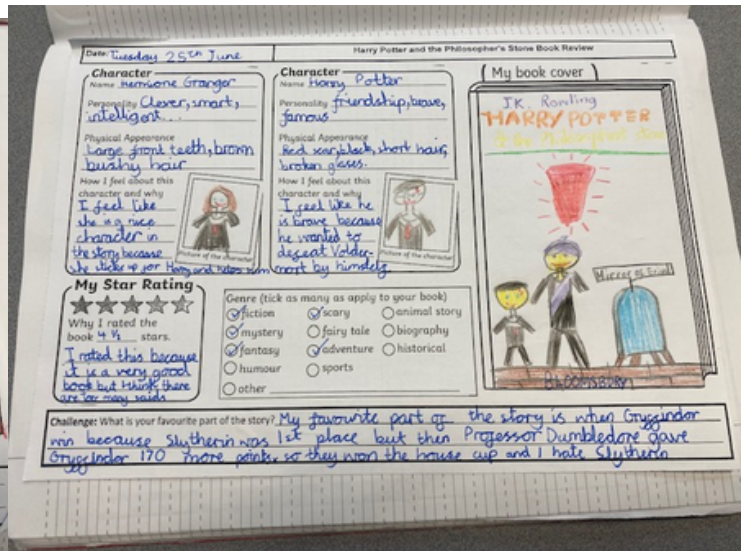 Date: Tuesday 25th June
Harry Potter and the Philosopher's Stone Book Review
Character
Name Hermione Granger
Personality Clever, smart,
intelligent...
Physical Appearance
Large front teeth, brown
bushy hair
How I feel about this
character and why
I feel like
she is a nice
character in
the story because
she sticks up for Harry and helps him
Picture of the character
Character
Name Harry Potter
Personality friendship, brave,
famous
Physical Appearance
Red scar, black, short hair,
broken glases.
How I feel about this
character and why
I feel like he
is brave because
he wanted to
defeat Volder-
mort by himself.
Picture of the character
My book cover
J.K. Rowling
HARRY POTTER
Mirror of Erised
BLOOMSBURY
My Star Rating
Why I rated the
book 4 ½ stars.
I rated this because
it is a very good
book but I think there
are
Genre (tick as many as apply to your book)
fiction
scary
animal story
mystery
fairy tale
biography
fantasy
adventure
historical
humour
sports
other
Challenge: What is your favourite part of the story? My favourite part of the story is when Gryffindor
win because Slytherin was 1st place but then Professor Dumbledore gave
Gryffindor 170 more points, so they won the house cup and I hate Slytherin